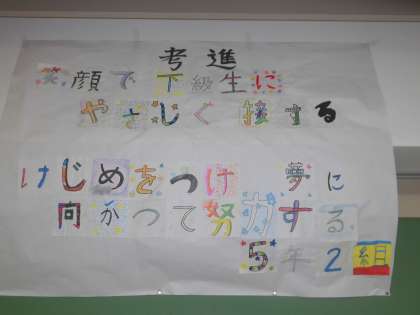 考進
笑顔で下級生に
やさしく接する
けじめをつけ 夢に
向かつて努力する
5年2組